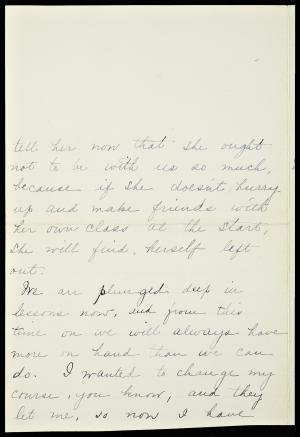 tell her now that she ought
not to be with us so much,
because if she doesn't hurry
up and make friends with
her own class at the start,
she will find herself left
out.
We are plunged deep in
lessons now, and from this
time on we will always have
more on hand than we can
do. I wanted to change my
course, you know, and they
let me, so now I have